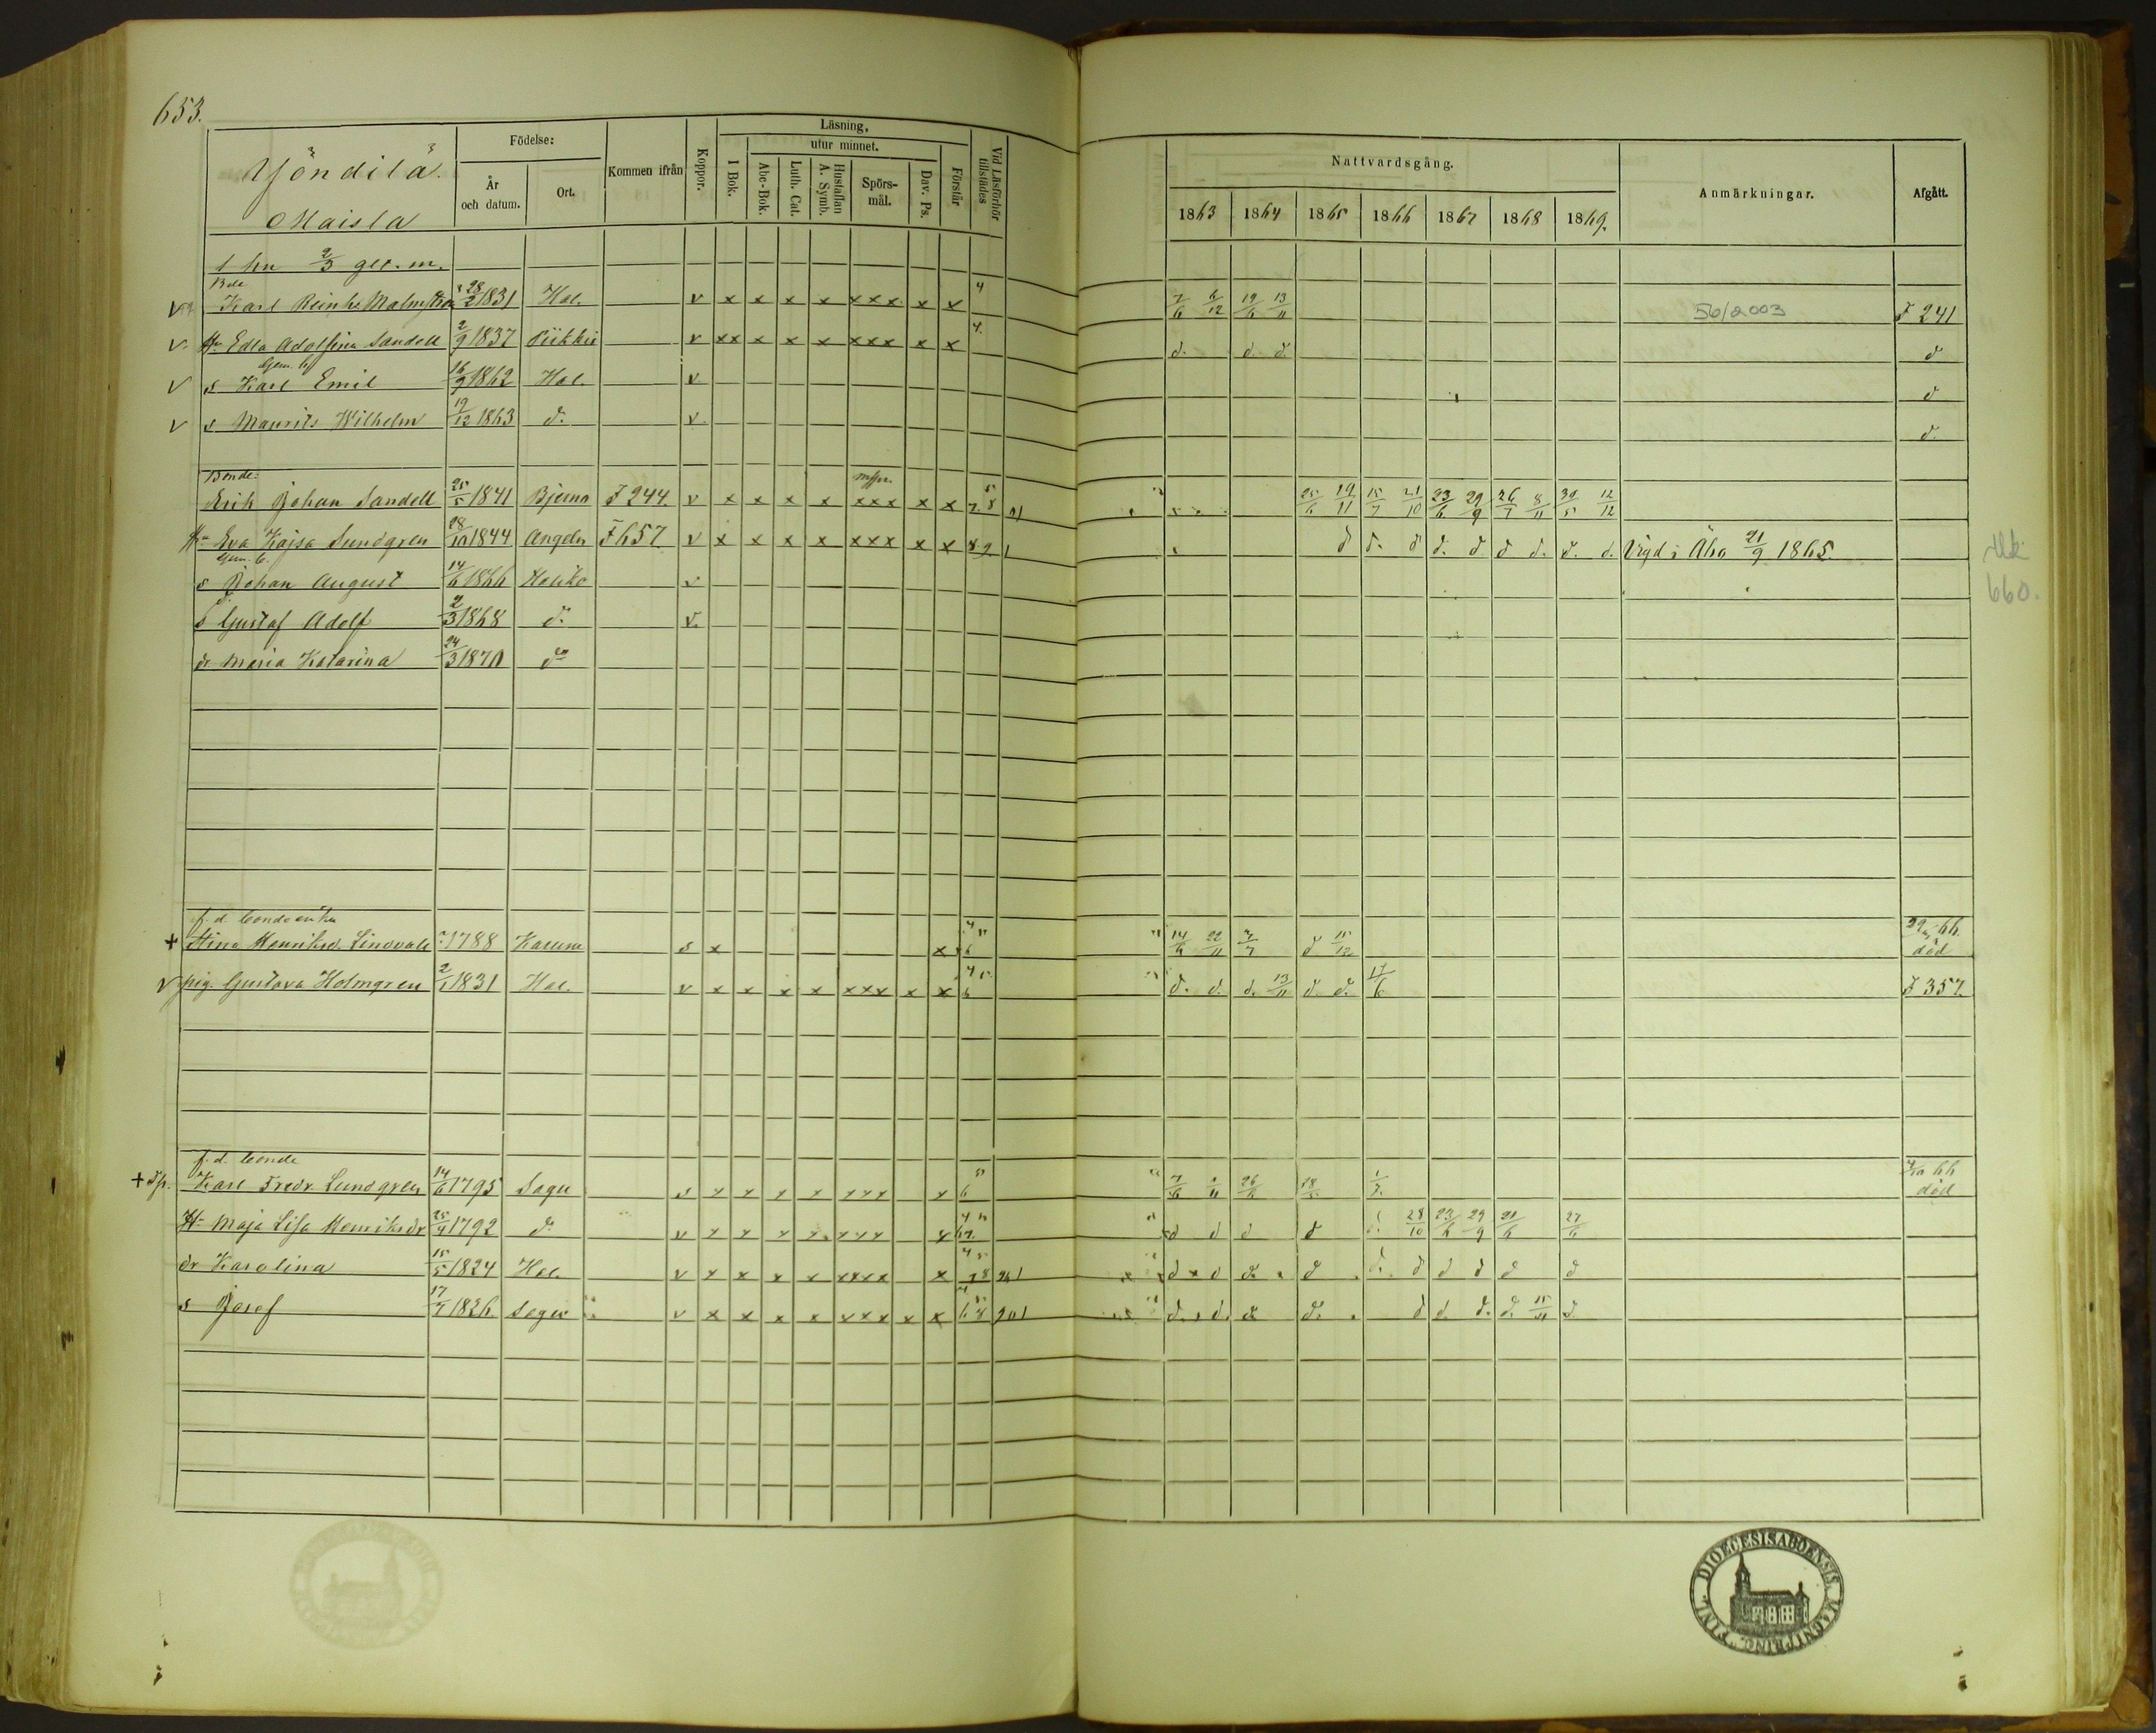 653.
Yöndilä.
Maisla
Födelse:
År och datum.
Ort.
Kommen ifrån
Koppor.
Läsning,
I Bok.
utur minnet.
Abc-Bok.
Luth. Cat.
Hustaflan A. Symb.
Spörs-mål.
Dav. Ps.
Förstår
Vid Läsförhör tillstädes
Nattvardsgång.
1863 1864 1865 1866 1867 1868 1869.
Anmärkningar.
Afgått.
1 hn 2/3 get. m.
Bde
v Karl Reinh. Malmström 28/2 1831 Hal. v x x x x xxx x x 4 7/6 6/12 19/6 13/11 56/2003 F 241
v. Hu Edla Adolfina Sandell 2/9 1837 Piikkis v xx x x x xxx x x 4. d. d. d. d
v s Karl Emil 16/9 1862 Hal. v d
v s Maurits Wilhelm 19/12 1863 d. v. d.
Bonde:
Erik Johan Sandell 25/5 1841 Bjerno F 244. v x x x x xxx x x 25/6 19/11 15/7 21/10 23/6 29/9 26/7 8/11 30/5 12/12
Hu Eva Kajsa Sundgren 28/10 1844 Angeln F 657 v x x x x xxx x x d d. d d. d d d. d. d. Vigd i Åbo 21/9 1865.
s Johan August 14/6 1866 Haliko v
s Gustaf Adolf 2/3 1868 d. v.
dr Maria Katarina 24/3 1870 do
660.
f. d. bondeenka
+ Stina Henriksd. Lindvall 1788 Karuna s x x 14/6 22/11 3/7 d 15/12 66. död
v pig. Gustava Holmgren 2/1 1831 Hal. v x x x x xxx x x d. d. d. 13/11 d d. 17/6 F 357.
f. d. bonde
+ Karl Fredr. Lundgren 14/6 1795 Sagu s x x x x xxx x 7/6 26/6 66 död
H- Maja Lisa Henriksdr 25/4 1792 d. v x x x x xxx x d d d d 28/10 23/6 29/9 21/6 27/6
dr Karolina 15/5 1824 Hal. v x x x x xxxx x d d d d d d d d d
s Josef 17/7 1826 Sagu v x x x x xxx x x d. d. d. d d. d. d. 15/11 d.
DIOECESIS ABOENSIS. MAGNI PRINC. FINL.